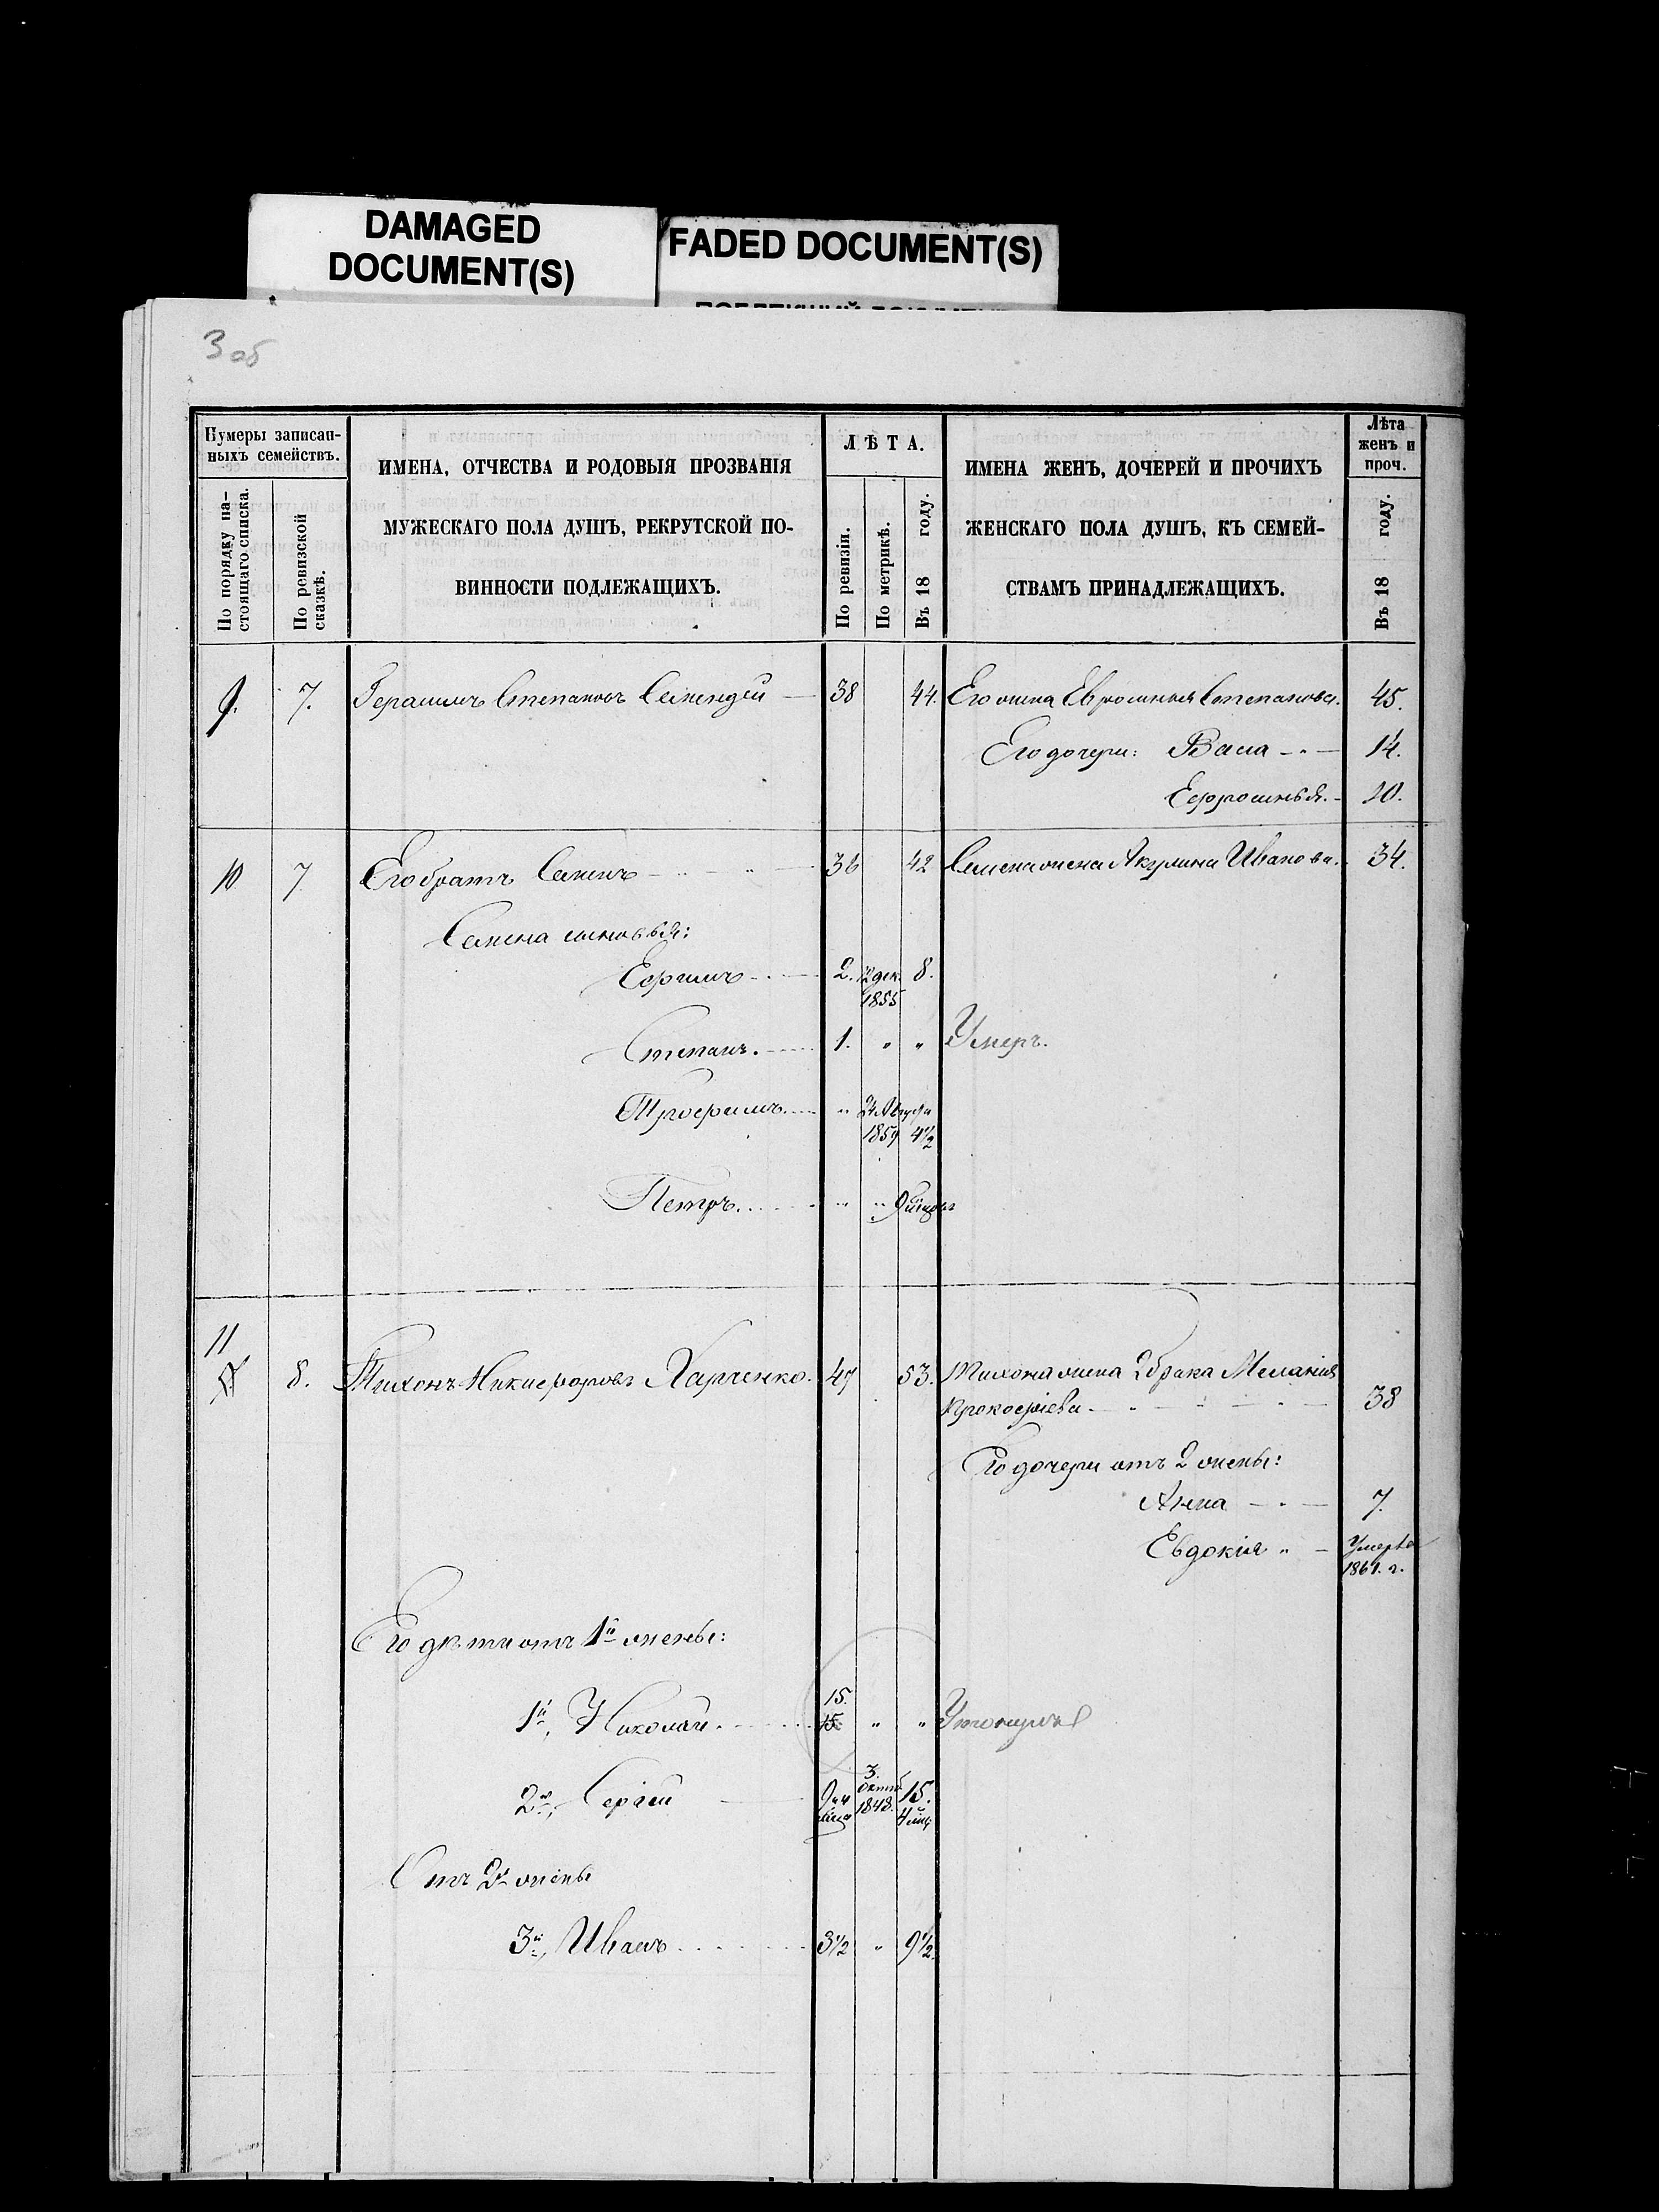 DAMAGED
DOCUMENT(S)
FADED DOCUMENT(S)
3 об
Нумеры записан-
ныхъ семействъ.
По порядку на-
стоящаго списка.
По ревизской
сказкѣ.
ИМЕНА, ОТЧЕСТВА И РОДОВЫЯ ПРОЗВАНІЯ
МУЖЕСКАГО ПОЛА ДУШЪ, РЕКРУТСКОЙ ПО-
ВИННОСТИ ПОДЛЕЖАЩИХЪ.
ЛѢТА.
По ревизіи.
По метрикѣ.
Въ 18 году.
ИМЕНА ЖЕНЪ, ДОЧЕРЕЙ И ПРОЧИХЪ
ЖЕНСКАГО ПОЛА ДУШЪ, КЪ СЕМЕЙ-
СТВАМЪ ПРИНАДЛЕЖАЩИХЪ.
Лѣта
женъ и
проч.
Въ 18 году.
9. 7. Герасимъ Степановъ 38 44. Его жена Евросинья Степанова. 45.
Его дочери: Васа 14.
Ефросинья. 10.
10 7 Его братъ Семенъ 36 42 Семена жена Акулина Иванова. 34.
Семена сыновья:
Ефимъ 2. 12 дек. 8.
1855
Степанъ. 1. " " Умеръ.
Трофимъ " 24 Августа
1859 4 1/2
Петръ " "
11
8. Тихонъ Никифоровъ Харченко. 47 53. Тихона жена 2 брака Меланія
Прокофіева 38
Его дочери отъ 2 жены:
Анна 7.
Евдокія " Умерла
1861. г.
Его дѣти отъ 1й жены:
15.
1й, Николай 15 " "
3.
2й, Сергѣй октяб. 15.
1848. 4 мѣс.
Отъ 2й жены
3й, Иванъ 3 1/2 " 9 1/2.